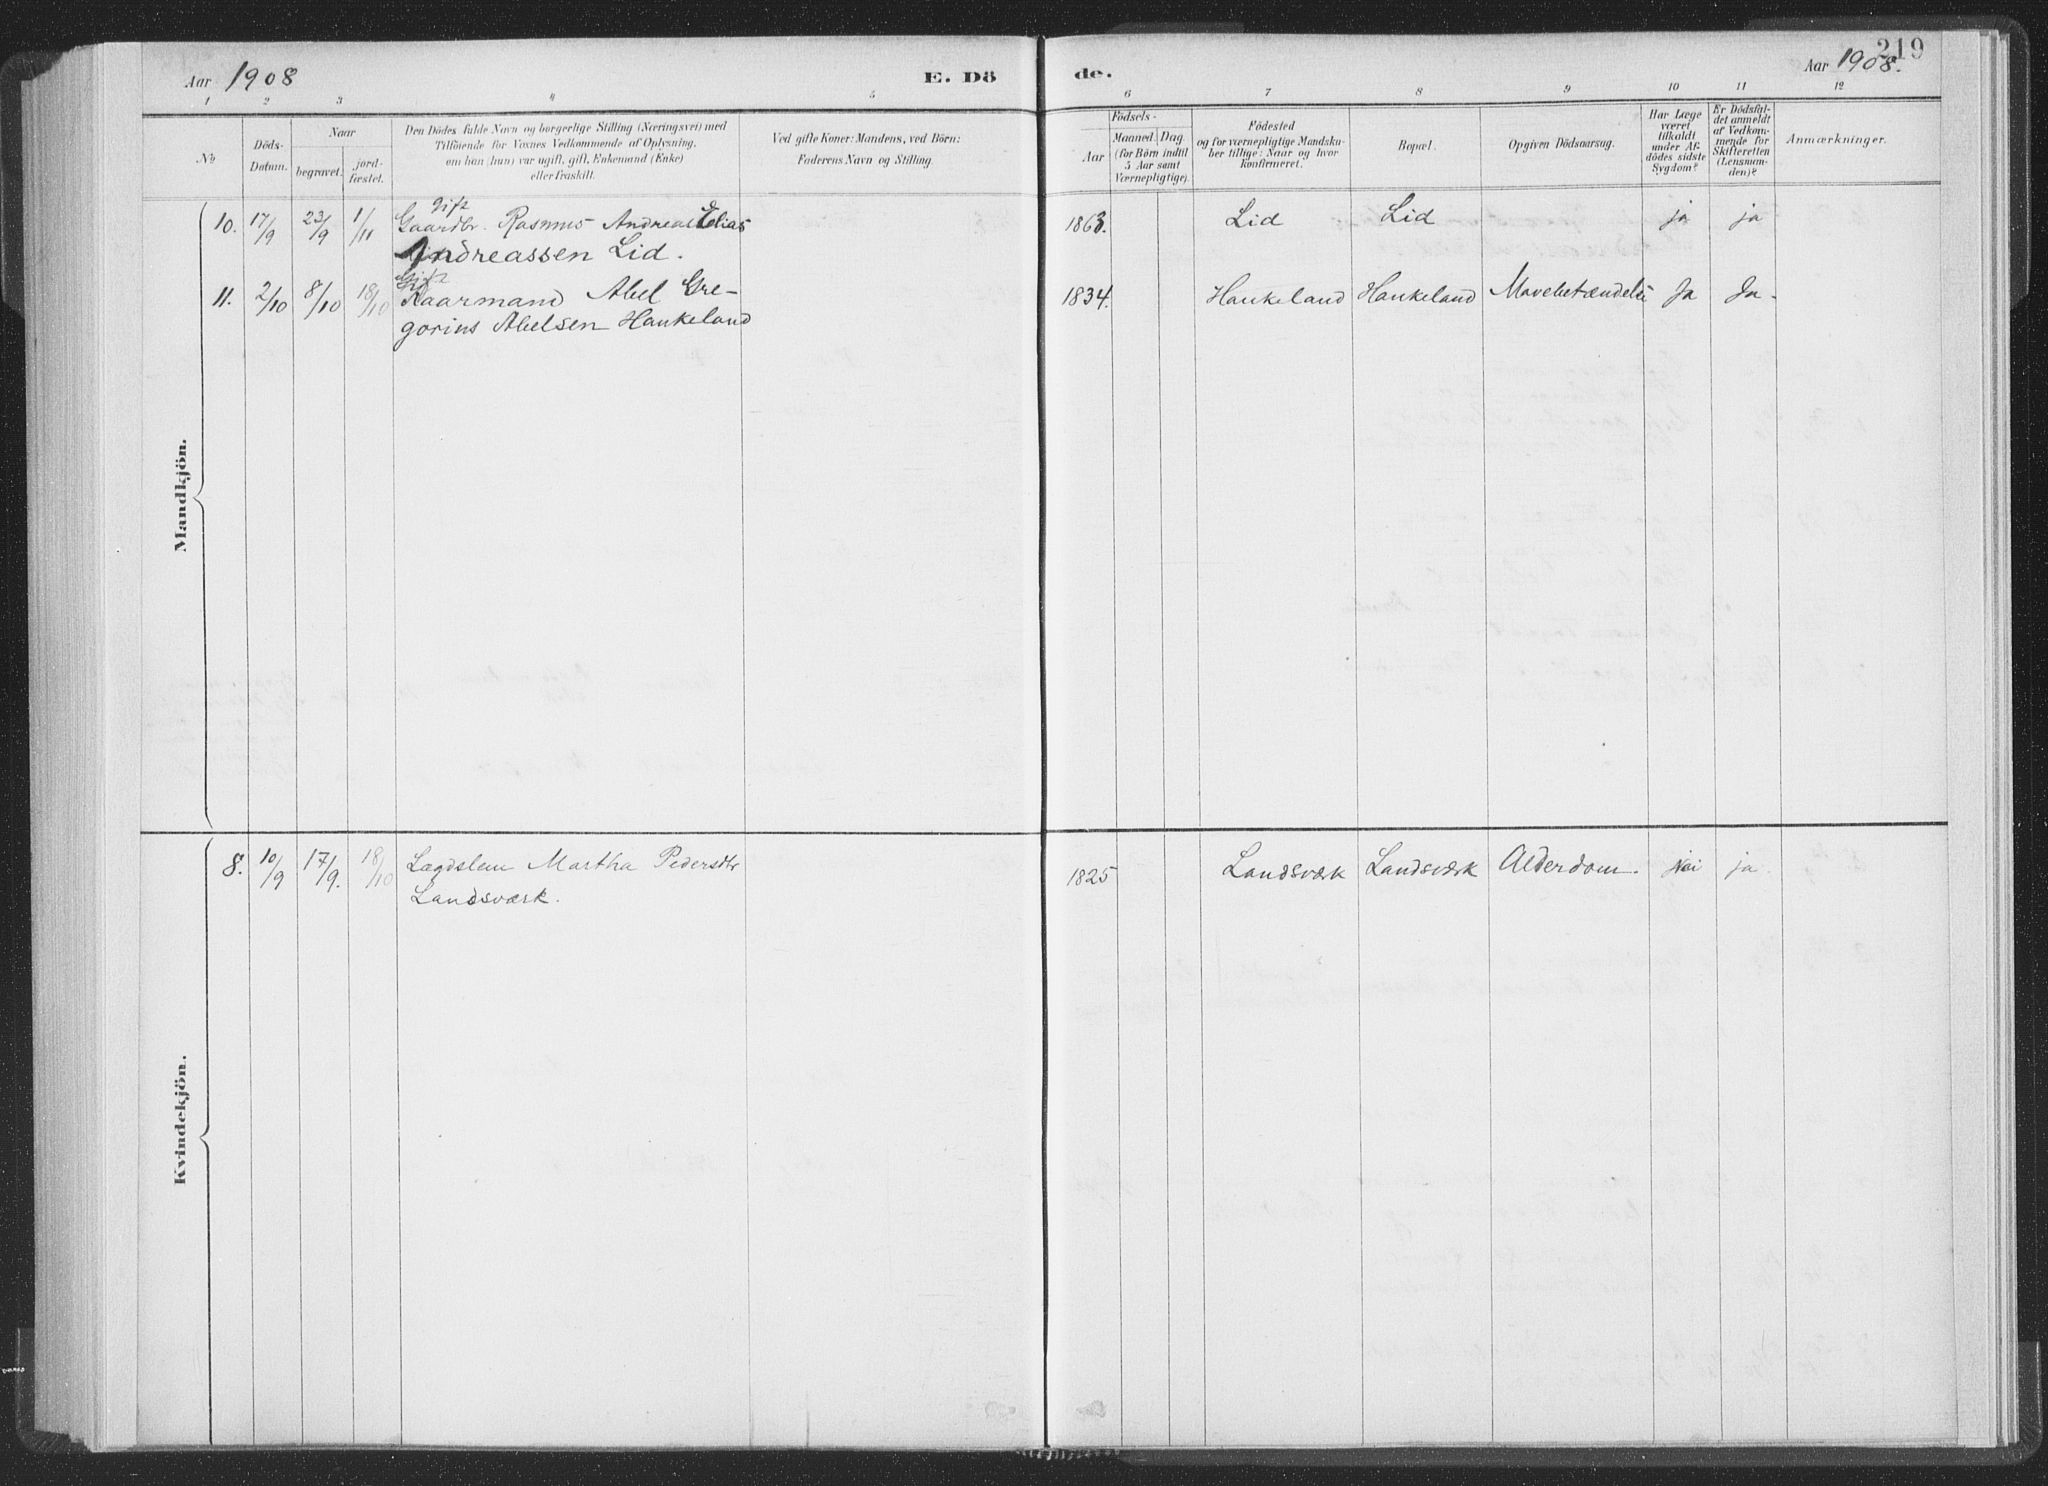 Aar 1908
E. Dö
de.
219
Aar 1908.
1 2 3 4 5 6 7 8 9 10 11 12
No
Döds-
Datum.
Naar
begravet.
jord-
fæstet.
Den Dödes fulde Navn og borgerlige Stilling (Næringsvei) med
Tilföiende for Voxnes Vedkommende af Oplysning,
om han (hun) var ugift, gift, Enkemand (Enke)
eller fraskilt.
Ved gifte Koner: Mandens, ved Börn:
Faderens Navn og Stilling.
Födsels-
Aar
Maaned. Dag
(for Börn indtil
5 Aar samt
Værnepligtige).
Födested
og for værnepligtige Mandsku-
ber tillige: Naar og hvor
konfirmeret.
Bopæl.
Opgiven Dödsaarsag.
Har Læge
været
tilkaldt
under Af-
dödes sidste
Sygdom?
Er Dödsfal-
det anmeldt
af Vedkom-
mende for
Skifteretten
(Lensman-
den)?
Anmærkninger.
Mandkjön.
gift
10. 17/9 23/9 1/11 Gaardbr. Rasmus Andreas Elias 1863. Lid Lid ja ja
Andreassen Lid.
Gift
11. 2/10 8/10 18/10 Kaarmand Abel Gre- 1834. Haukeland Haukeland Mavebetændelse Ja Ja.
gorius Abelsen Haukeland
Kvindekjön.
8. 10/9 17/9. 18/10 Lægdslem Martha Pedersdtr 1825 Landsværk Landsværk Alderdom. Nei ja.
Landsværk.